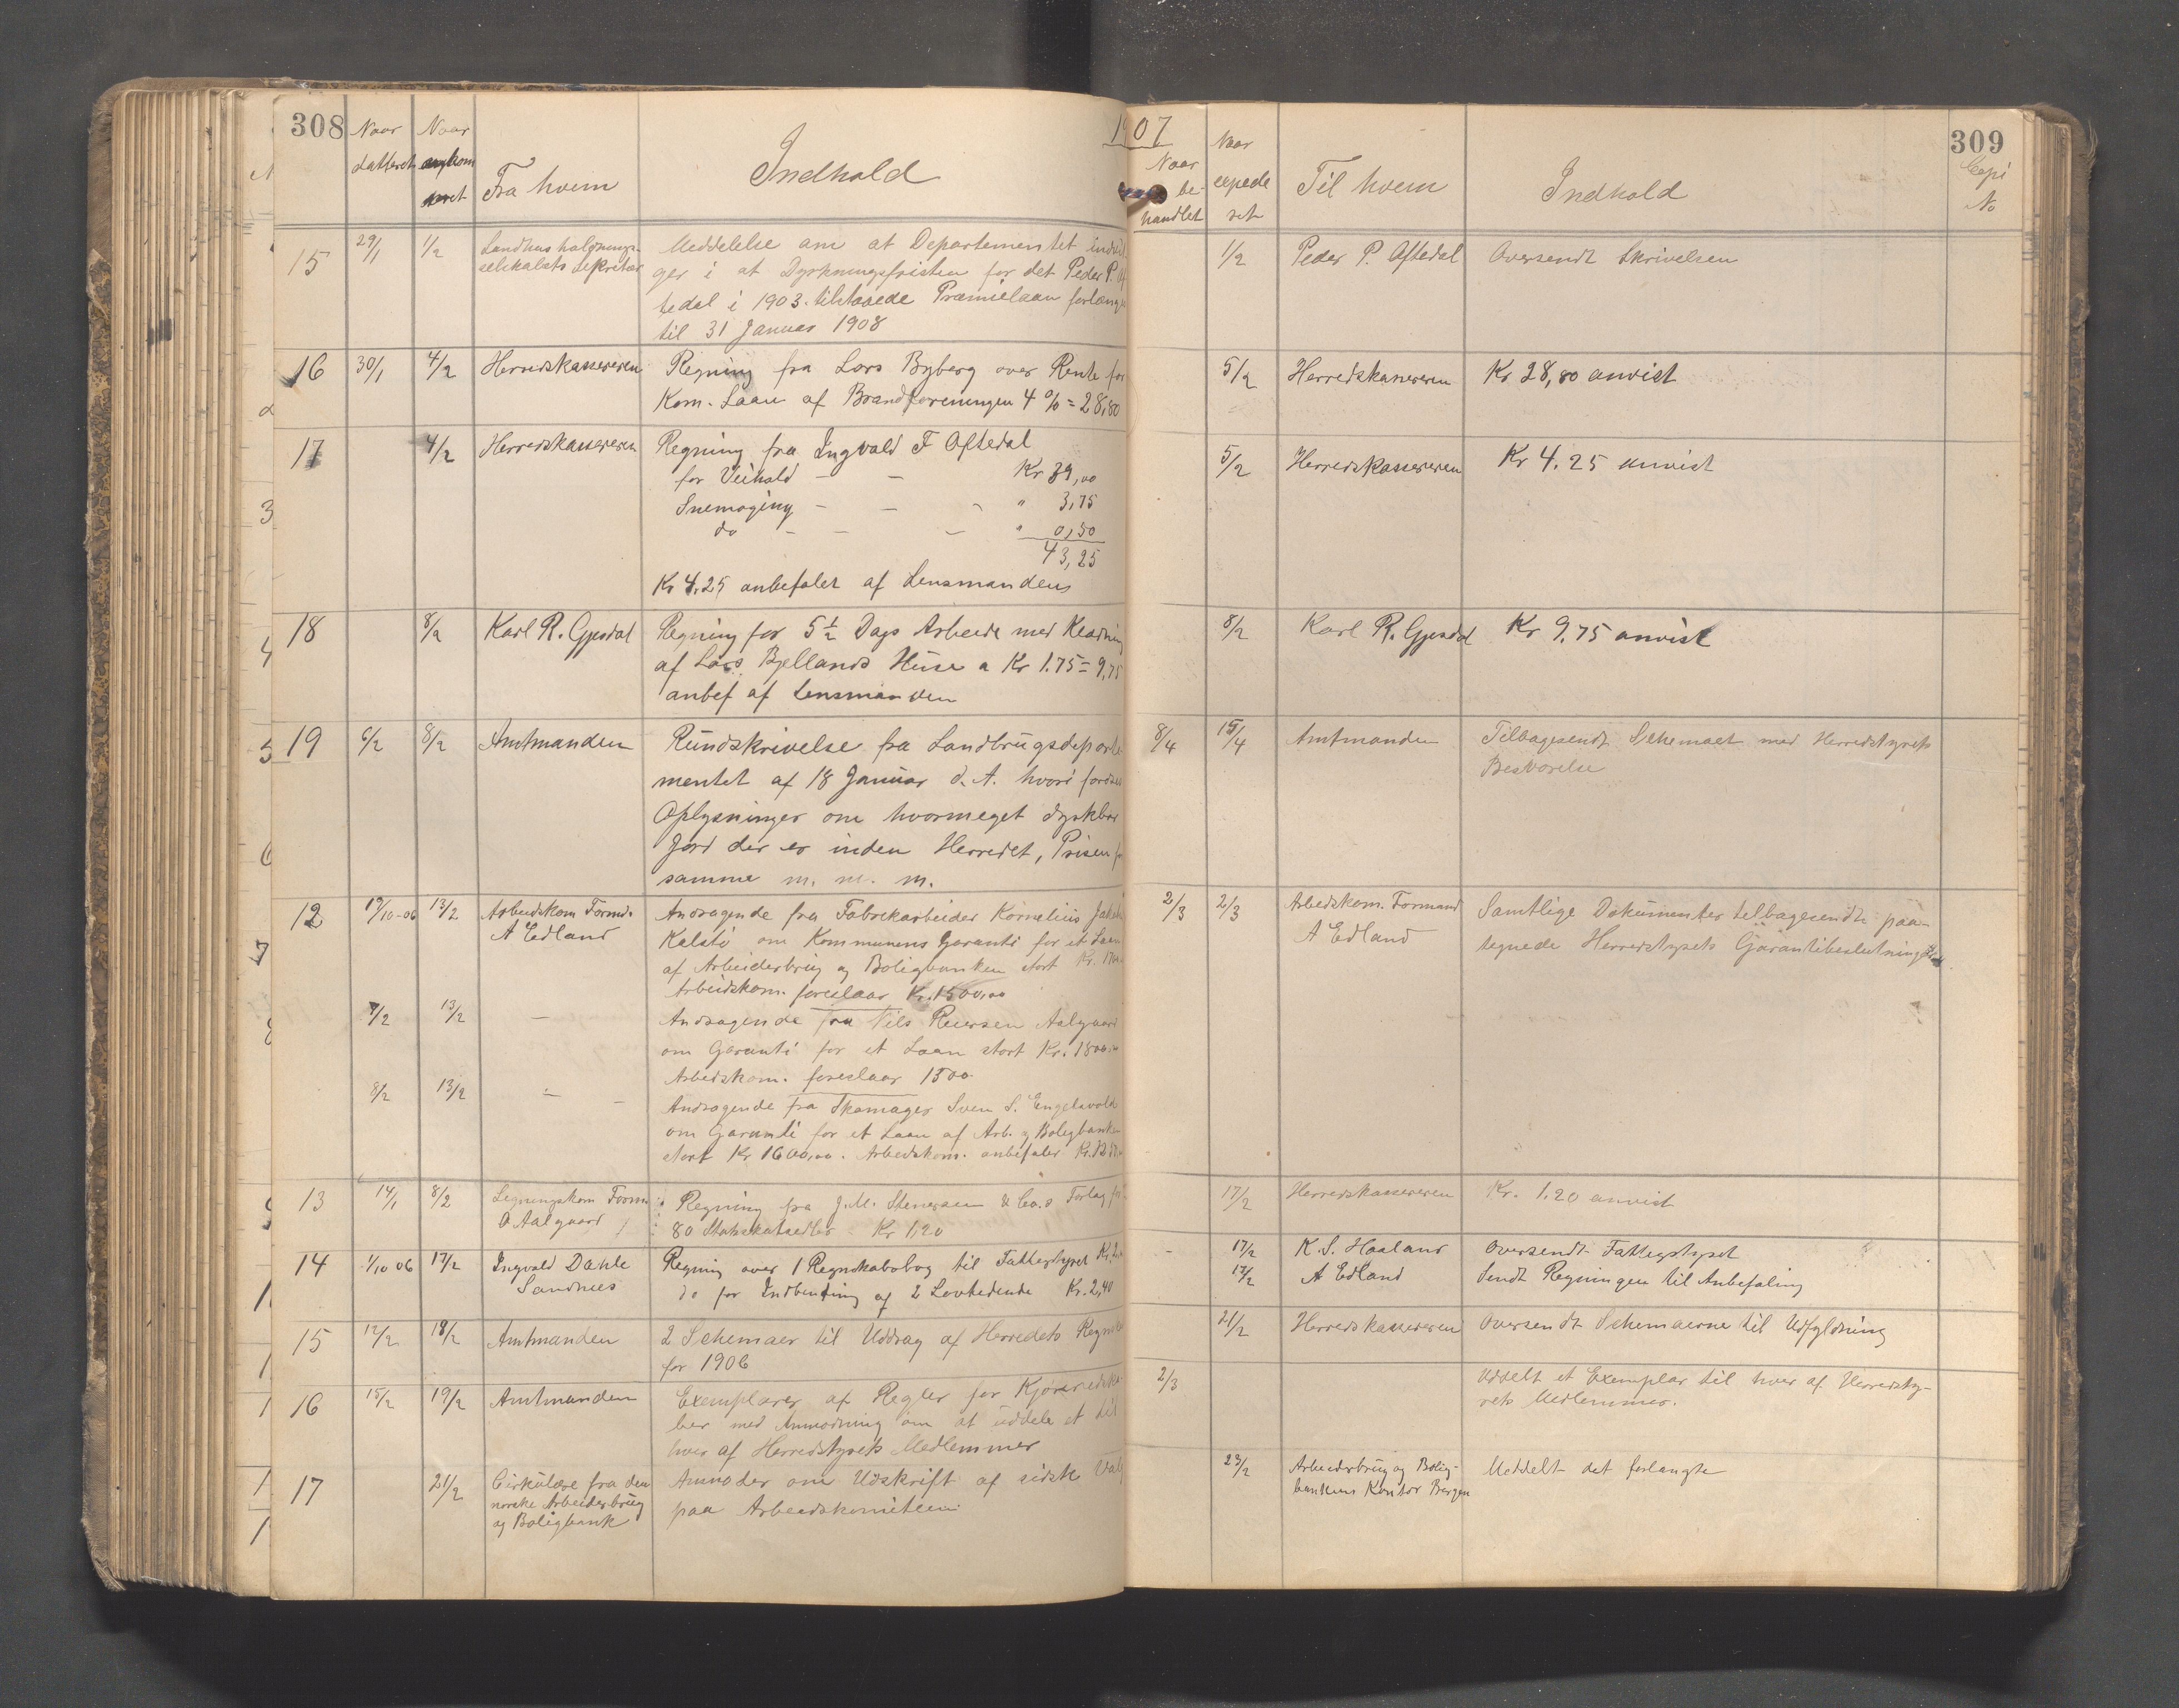 308
1907
309
Naar datteret
Naar
Fra hvem
Indhold
Naar behandlet
Naar expederet
Til hvem
Indhold
Copi No
15 29/1 1/2 Landhusholdnings-
selskabets Sekretær
Meddelelse om at Departementet
ger i at Dyrkningsfristen for det Peder P.
tedal i 1903 tilstaaede Præmielaan
til 31 Januar 1908
1/2 Peder P. Oftedal Oversendt Skrivelsen
16 30/1 4/2 Herredskassereren
Regning fra Lars Byberg over Rente for
Kom. Laan af Brandforeningen 4 % = 28,80
5/2 Herredskassereren Kr 28,80 anvist
17 4/2 Herredskassereren
Regning fra Ingvald F Oftedal
for Veihold - - Kr 39,00
Snemoging - - - " 3,75
do - - - " 0,50
43,25
Kr 4.25 anbefalet af Lensmanden
5/2 Herredskassereren Kr 4.25 anvist
18 8/2 Karl R. Gjesdal
Regning for 5 1/2 Dags Arbeide med Klædning
af Lars Bjellands Huse a Kr 1.75 = 9,75
anbef af Lensmanden
8/2 Karl R. Gjesdal Kr 9.75 anvist
19 6/2 8/2 Amtmanden
Rundskrivelse fra Landbrugsdeparte
mentet af 18 Januar d. A. hvori
Oplysninger om hvormeget dyrkbar
Jord der er inden Herredet, Prisen
samme m. m. m.
8/4 15/4 Amtmanden Tilbagesendt Schemaet med Herredstyrets
Besvarelse
12 19/10-06 13/2 Arbeidskom Formd.
A Edland
Andragende fra Fabrikarbeider Kornelius
om Kommunens Garanti for et Laan
af Arbeiderbrug og Boligbanken stort Kr.
Arbeidskom. foreslaar Kr. 1500,00
7/2 13/2 -
Andragende fra Nils Reiersen Aalgaard
om Garanti for et Laan stort Kr. 1800,00
Arbeidskom. foreslaar 1500
8/2 13/2 - -
Andragende fra Skomager Sven S.
om Garanti for et Laan af Arb. og Boligbanken
stort Kr 1600,00. Arbeidskom. anbefaler Kr.
2/3 2/3 Arbeidskom. Formand
A Edland
Samtlige Dokumenter tilbagesendt paa-
tegnede Herredstyrets Garantibeslutning
13 14/1 8/2 Ligningskom Form.
O Aalgaard
Regning fra J.M. Stenersen & Co.s Forlag for
80 Statsskatsedler - Kr 1,20
17/2 Herredskassereren Kr. 1.20 anvist
14 1/10 06 17/2 Ingvald Dahle
Sandnes
Regning over 1 Regnskabsbog til Fattigstyret Kr.
do for Indbinding af 2 Lovtidende Kr. 2,40
- 17/2 K. S. Haaland Oversendt Fattigstyret
17/2 A Edland Sendt Regningen til Anbefaling
15 12/2 18/2 Amtmanden
2 Schemaer til Uddrag af Herredets
for 1906
21/2 Herredskassereren Oversendt Schemaerne til Udfyldning
16 15/2 19/2 Amtmanden
Exemplarer af Regler for
ber med Anmodning om at uddele et til
hver af Herredstyrets Medlemmer
2/3 Uddelt et Exemplar til hver af Herredsty-
rets Medlemmer.
17 21/2 Cirkulære fra den
norske Arbeiderbrug
og Boligbank
Anmoder om Udskrift af sidste Valg
paa Arbeidskomiteen
23/2 Arbeiderbrug og Bolig-
bankens Kontor Bergen
Meddelt det forlangte